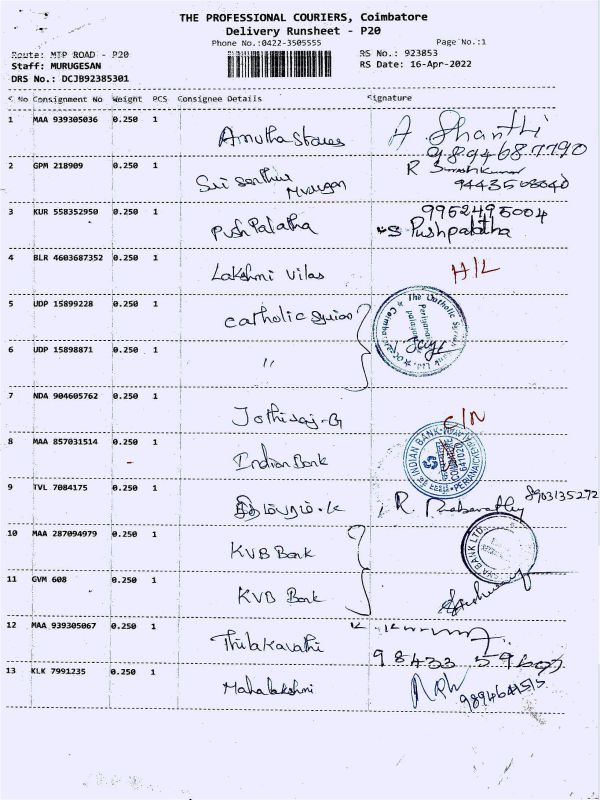 THE PROFESSIONAL COURIERS, Coimbatore
Delivery Runsheet - P20
Phone No.:0422-3505555
Page No.:1
Route: MTP ROAD - P20
Staff: MURUGESAN
DRS No.: DCJB92385301
RS No.: 923853
RS Date: 16-Apr-2022
S.No Consignment No Weight PCS Consignee Details Signature
1 MAA 939305036 0.250 1 Amutha Stores A. Shanthi
9894687790
2 GPM 218909 0.250 1 Sri senthur Murugan R
9443568040
3 KUR 558352950 0.250 1 PushPalatha 9952495004
S Pushpalatha
4 BLR 4603687352 0.250 1 Lakshmi Vilas H/L
5 UDP 15899228 0.250 1 Catholic Syrian The Catholic Syrian
6 UDP 15898871 0.250 1 "
7 NDA 904605762 0.250 1 Jothiraj-G C/N
8 MAA 857031514 0.250 1 Indian Bank INDIAN BANK
9 TVL 7084175 0.250 1 R. Prabavathy 8903135272
10 MAA 287094979 0.250 1 KVB Bank BANK LTD
11 GVM 608 0.250 1 KVB Bank
12 MAA 939305067 0.250 1 Thilakavathi
98433
13 KLK 7991235 0.250 1 Mahalakshmi